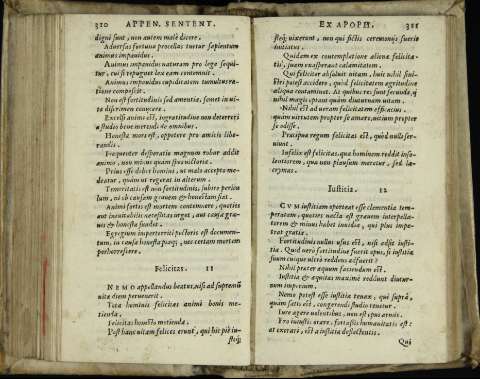 310 APPEN. SENTENT.
digni sunt, non autem male dicere.
Aduersas fortunæ procellas tuetur sapientum
animus impauidus.
Animus impauidus naturam pro lege sequi-
tur, cui si repugnet lex eam contemnit.
Animus impauidus cupiditatem tumultus ra-
tione composcit.
Non est fortitudinis sed amentiæ, somet in ui-
tæ discrimen conijcere.
Excelsi animi est, ingratitudine non deterreri
a studio bene merendi de omnibus.
Honesta mors est, oppetere pro amicis libe-
randis.
Frequenter desperatio magnum robur addit
animo, non minus quam spes uictoriæ.
Prius esse debet homini, ut malo accepto me-
deatur, quàm ut regerat in alterum.
Temeritatis est non fortitudinis, subire pericu
lum, ni ob causam grauem & honestam fiat.
Animi fortis est mortem contemnere, quoties
aut ineuitabilis necessitas urget, aut causa gra-
uis & honesta suadet.
Egregium imperterriti pectoris est documen-
tum, in causa honesta piaque, nec certam mortem
perhorrescere.
Felicitas. 11
NEMO appellandus beatus, nisi ad supremū
uitæ diem peruenerit.
Tota hominis felicitas animi bonis me-
tienda.
Felicitas honesto metienda.
Post hanc uitam felices erunt, qui hic piè iu-
steq;
EX APOPH. 311
steq; uixerunt, non qui fictis ceremonijs fuerīt
initiatus.
Quidam ex contemplatione alienæ felicita-
tis, suam exasperant calamitatem.
Qui feliciter absoluit uitam, huic nihil sini-
stri potest accidere, quòd felicitatem ægritudine
aliqua contaminet. At quibus res sunt secundæ, ij
nihil magis optant quàm diuturnam uitam.
Nihil est ad ueram felicitatem efficacius,
quàm uirtutem propter se amare, uitium propter
se odisse.
Præcipua regum felicitas est, quòd nulli ser-
uiunt.
Infelix est felicitas, quæ hominem reddit inso-
lentiorem, quæ non plausum meretur, sed la-
crymas.
Iustitia. 12
CVM iustitiam oporteat esse clementia tem-
peratam, quoties nacta est grauem interpella-
torem & minus habet inuidiæ, qui plus impe-
trat gratiæ.
Fortitudinis nullus usus est, nisi adsit iusti-
tia. Quid uerò fortitudine fuerit opus, si iustitia
suum cuique ultrò reddens adfuerit?
Nihil præter æquum faciendum est.
Iustitia & æquitas maximè reddunt diutur-
num imperium.
Nemo potest esse iustitiæ tenax, qui suprà,
quàm satis est, congerendi studio tenetur.
Iure agere uolentibus, non est opus armis.
Pro iniustis orare, fortassis humanitatis est:
at exorari, est à iustitia deflectentis.
Qui